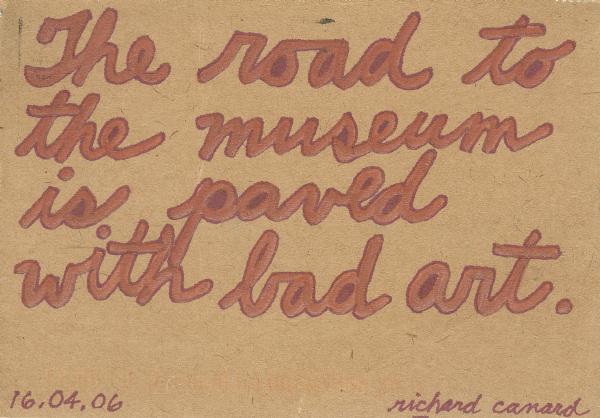 The road to
the museum
is paved
with bad art.
16.04.06 richard canard